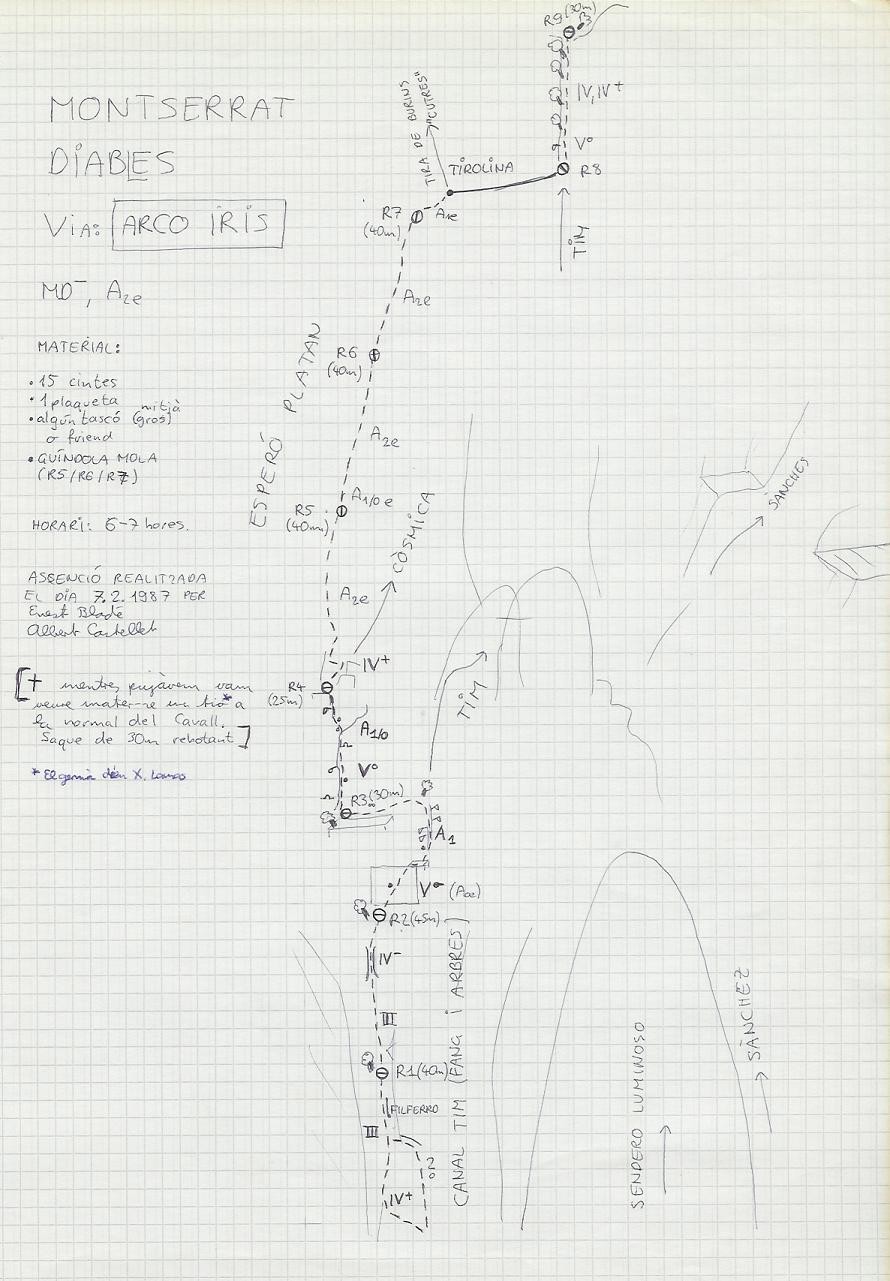 MONTSERRAT
DIABLES
VIA: ARCO IRIS
MD⁻, A2e
MATERIAL:
• 15 cintes
• 1 plaqueta
mitjà
• algún tascó (gros)
o friend
• GUÍNDOLA MOLA
(R5/R6/R7)
HORARI: 6-7 hores.
ASSENCIÓ REALITZADA
EL DÍA 7.2.1987 PER
Ernest Bladé
Albert Castellet
[† mentres pujàvem vam
veure matar-se un tio* a
la normal del Cavall.
Saque de 30m rebotant]
R9 (30m)
IV, IV+
Vº
R8
TIM
TIRA DE BURINS
"CUTRES"
TIROLINA
R7
(40m)
A1e
A2e
R6
(40m)
ESPERÓ PLATAN
A2e
A1/0e
R5
(40m)
CÒSMICA
A2e
SÀNCHES
IV+
R4
(25m)
TIM
A1/0
Vº
R3 (30m)
A1
Vº (A0e)
R2 (45m)
IV⁻
III
R1 (40m)
FILFERRO
III
IV+
CANAL TIM (FANG I ARBRES)
SENDERO LUMINOSO
SÀNCHEZ